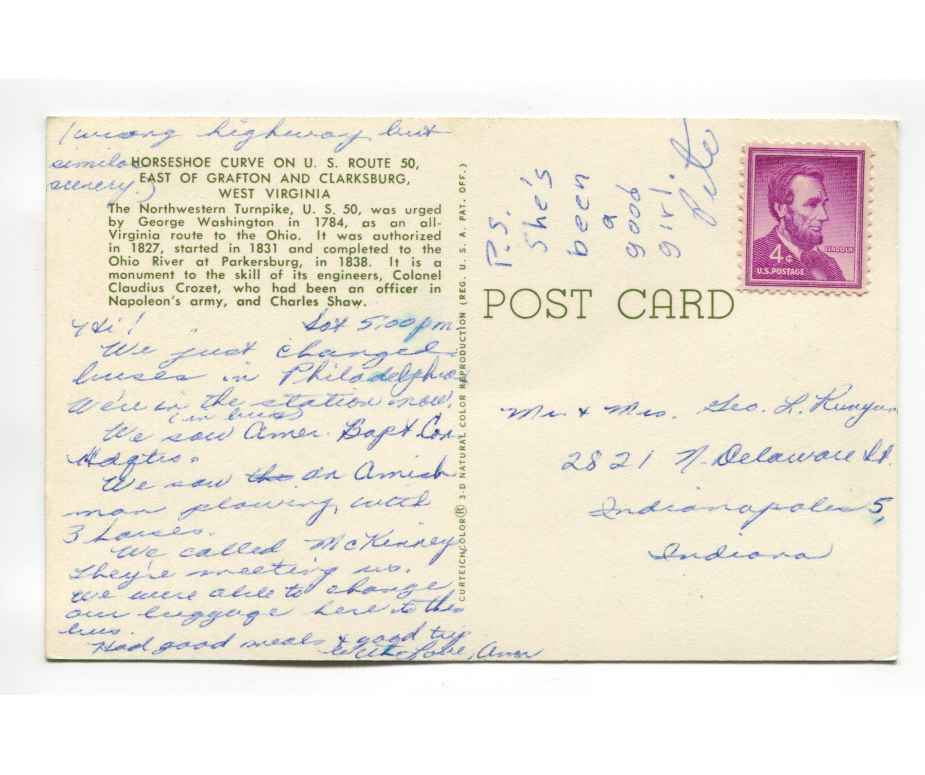 (wrong highway but
similar
scenery.)
HORSESHOE CURVE ON U. S. ROUTE 50,
EAST OF GRAFTON AND CLARKSBURG,
WEST VIRGINIA
The Northwestern Turnpike, U. S. 50, was urged
by George Washington in 1784, as an all-
Virginia route to the Ohio. It was authorized
in 1827, started in 1831 and completed to the
Ohio River at Parkersburg, in 1838. It is a
monument to the skill of its engineers, Colonel
Claudius Crozet, who had been an officer in
Napoleon's army, and Charles Shaw.
Hi! Sat 5:00 pm
We just changed
buses in Philadelphia
We're in the station now.
(in bus)
We saw Amer. Bapt Con
Hdqtrs.
We saw an Amish
man plowing with
3 horses.
We called McKinney
They're meeting us.
We were able to change
our luggage here to this
bus.
Had good meals & good trip
With Love, Ann
CURTEICHCOLOR® 3-D NATURAL COLOR REPRODUCTION (REG. U. S. A. PAT. OFF.)
P.S.
She's
been
a
good
girl.
Pete
LINCOLN
4¢
U.S. POSTAGE
POST CARD
Mr. & Mrs. Geo. L. Runyan
2821 N. Delaware St.
Indianapolis 5,
Indiana